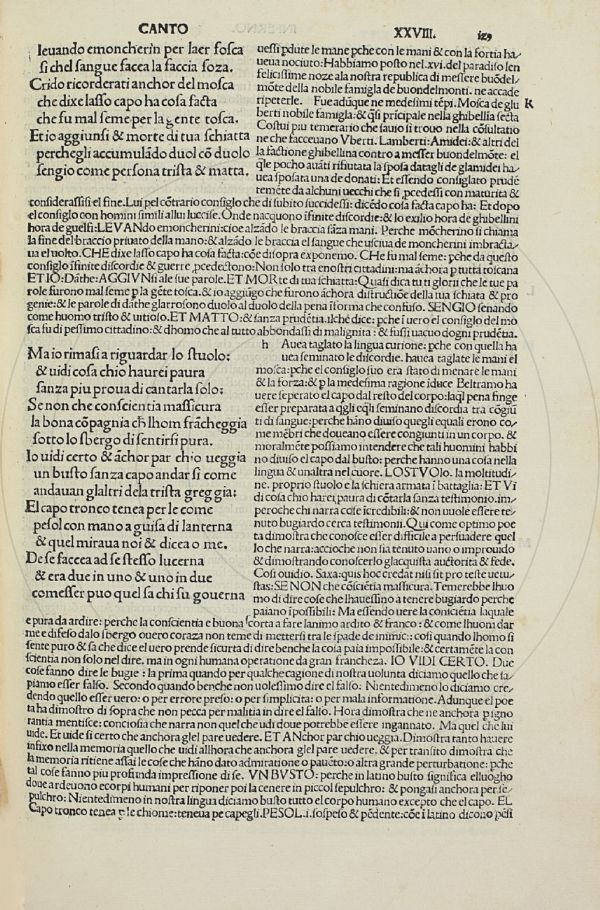 CANTO XXVIII. 129
leuando emoncherin per laer fosca
si chel sangue faccea la faccia soza.
Crido ricorderati anchor del mosca
che dixe lasso capo ha cosa facta
che fu mal seme per la gente tosca.
Et io aggiunsi & morte di tua schiatta
perchegli accumulādo duol cō duolo
sengio come persona trista & matta.
uessi pdute le mane pche con le mani & con la fortia ha
uea nociuto: Habbiamo posto nel .xvi. del paradiso len
felicissime noze ala nostra republica di messere buōdel-
mōte della nobile famiglia de buondelmonti. ne accade
ripeterle. Fue adūque ne medesimi tēpi. Mosca de glu K
berti nobile famiglia: & q̄si pricipale nella ghibellia secta
Costui piu temerario che sauio si trouo nella cōsultatio
ne che facceuano Vberti. Lamberti: Amidei: & altri del
la factione ghibellina contro a messer buondelmōte: el
q̄le pocho auāti rifiutata la sposa datagli de glamidei ha
uea sposata una de donati: Et essendo consigliato prudē
temēte da alchuni uecchi che si pcedessi con maturita &
considerassisi el fine. Lui pel cōtrario consiglio che di subito succidessi: dicēdo cosa facta capo ha: Et dopo
el consiglio con homini simili allui luccise. Onde nacquono ifinite discordie: & lo exilio hora de ghibellini
hora de guelfi: LEVANdo emoncherini: cioe alzādo le braccia sāza mani. Perche mōcherino si chiama
la fine del braccio priuato della mano: & alzādo le braccia el sangue che usciua de moncherini imbracta-
ua el uolto. CHE dixe lasso capo ha cosa facta: cōe disopra exponemo. CHe fu mal seme: pche da questo
consiglio ifinite discordie & guerre pcedectono: Non solo tra e nostri cittadini: ma āchora p tutta toscana
ET IO: Dāthe: AGGIVNsi ale sue parole. ET MORte di tua schiatta: Quasi dica tu ti glorii che le tue pa
role furono mal seme p la gēte tosca: & io aggiūgo che furono āchora distructiōe della tua schiata & pro
genie: & le parole di dāthe gla rrosono duolo al duolo della pena iforma che confuso. SENGIO senando
come huomo tristo & uitioso. ET MATTO: & sanza prudētia. ilchē dice: pche luero el consiglio del mo
sca fu di pessimo cittadino: & dhomo che al tutto abbondassi di malignita: & fussi uacuo dogni prudētia.
Ma io rimasi a riguardar lo stuolo:
& uidi cosa chio haurei paura
sanza piu proua di cantarla solo:
Se non che conscientia massicura
la bona cōpagnia ch̄ lhom frācheggia
sotto lo sbergo di sentirsi pura.
Io uidi certo & āchor par chio ueggia
un busto sanza capo andar si come
andauan glaltri dela trista greggia:
El capo tronco tenea per le come
pesol con mano a guisa di lanterna
& quel miraua noi & dicea o me.
De se faccea ad se stesso lucerna
& era due in uno & uno in due
com esser puo quel sa chi su gouerna
h Auea taglato la lingua curione: pche con quella ha
uea seminato le discordie. hauea taglate le mani el
mosca: pche el consiglo suo era stato di menare le mani
& la forza: & p la medesima ragione iduce Beltramo ha
uere seperato el capo dal resto del corpo: laql pena finge
esser preparata a qgli eq̄li seminano discordia tra cōgiū
ti di sangue: perche hāno diuiso quegli equali erono co-
me mēbri che doueano essere congiunti in un corpo. &
moralmēte possiamo intendere che tali huomini habbi
no diuiso el capo dal busto: perche hanno una cosa nella
lingua & unaltra nel cuore. LO STVOlo. la moltitudi
ne. proprio stuolo e la schiera armata i battaglia: ET VI
di cosa chio harei paura di cōtarla sanza testimonio. im-
peroche chi narra cose icredibili: & non uuole essere te-
nuto bugiardo cerca testimonii. Qui come optimo poe
ta dimostra che conosce esser difficile a persuadere quel
lo che narra: accioche non sia tenuto uano o improuido
& dimostrando conoscerlo glacquista auctorita & fede.
Cosi ouidio. Saxa: quis hoc credat nisi sit pro teste uetu-
stas: SE NON che cōsciētia massicura. Temerebbe lhuo
mo di dire cose che lhauessino a tenere bugiardo perche
paiano ipossibili: Ma essendo uere la consciētia laquale
e pura da ardire: perche la conscientia e buona scorta a fare lanimo ardito & franco: & come lhuom dar
me e difeso dalo sbergo ouero coraza non teme di mettersi tra le spade de inimici: cosi quando lhomo si
sente puro & sa che dice el uero prende sicurta di dire benche la cosa paia impossibile: & certamēte la con
scientia non solo nel dire, ma in ogni humana operatione da gran francheza. IO VIDI CERTO. Due
cose fanno dire le bugie: la prima quando per qualche cagione di nostra uolunta diciamo quello che sa-
piamo esser falso. Secondo quando benche non uolessimo dire el falso: Nientedimeno lo diciamo cre-
dendo quello esser uero: o per errore preso: o per simplicita: o per mala informatione. Adunque el poe
ta ha dimostro di sopra che non pecca per malitia in dire el falso. Hora dimostra che ne anchora p igno
rantia mentisce: conciosia che narra non quel che udi doue potrebbe essere ingannato. Ma quel che lui
uide. Et uide si certo che anchora glel pare uedere. ET ANchor par chio ueggia. Dimostra tanto hauere
infixo nella memoria quello che uidi allhora che anchora glel pare uedere. & per transito dimostra che
la memoria ritiene assai le cose che hāno dato admiratione o paueto: o altra grande perturbatione: pche
tal cose fanno piu profunda impressione di se. VN BVSTO: perche in latino busto significa elluogho
doue ardeuono e corpi humani per riponer poi la cenere in piccol sepulchro: & pongasi anchora per se-
pulchro: Nientedimeno in nostra lingua diciamo busto tutto el corpo humano excepto che el capo. EL
Capo tronco tenea p le chiome: teneua pe capegli. PESOL .i. sospeso & pēdente: cōe i latino dicono pēsi